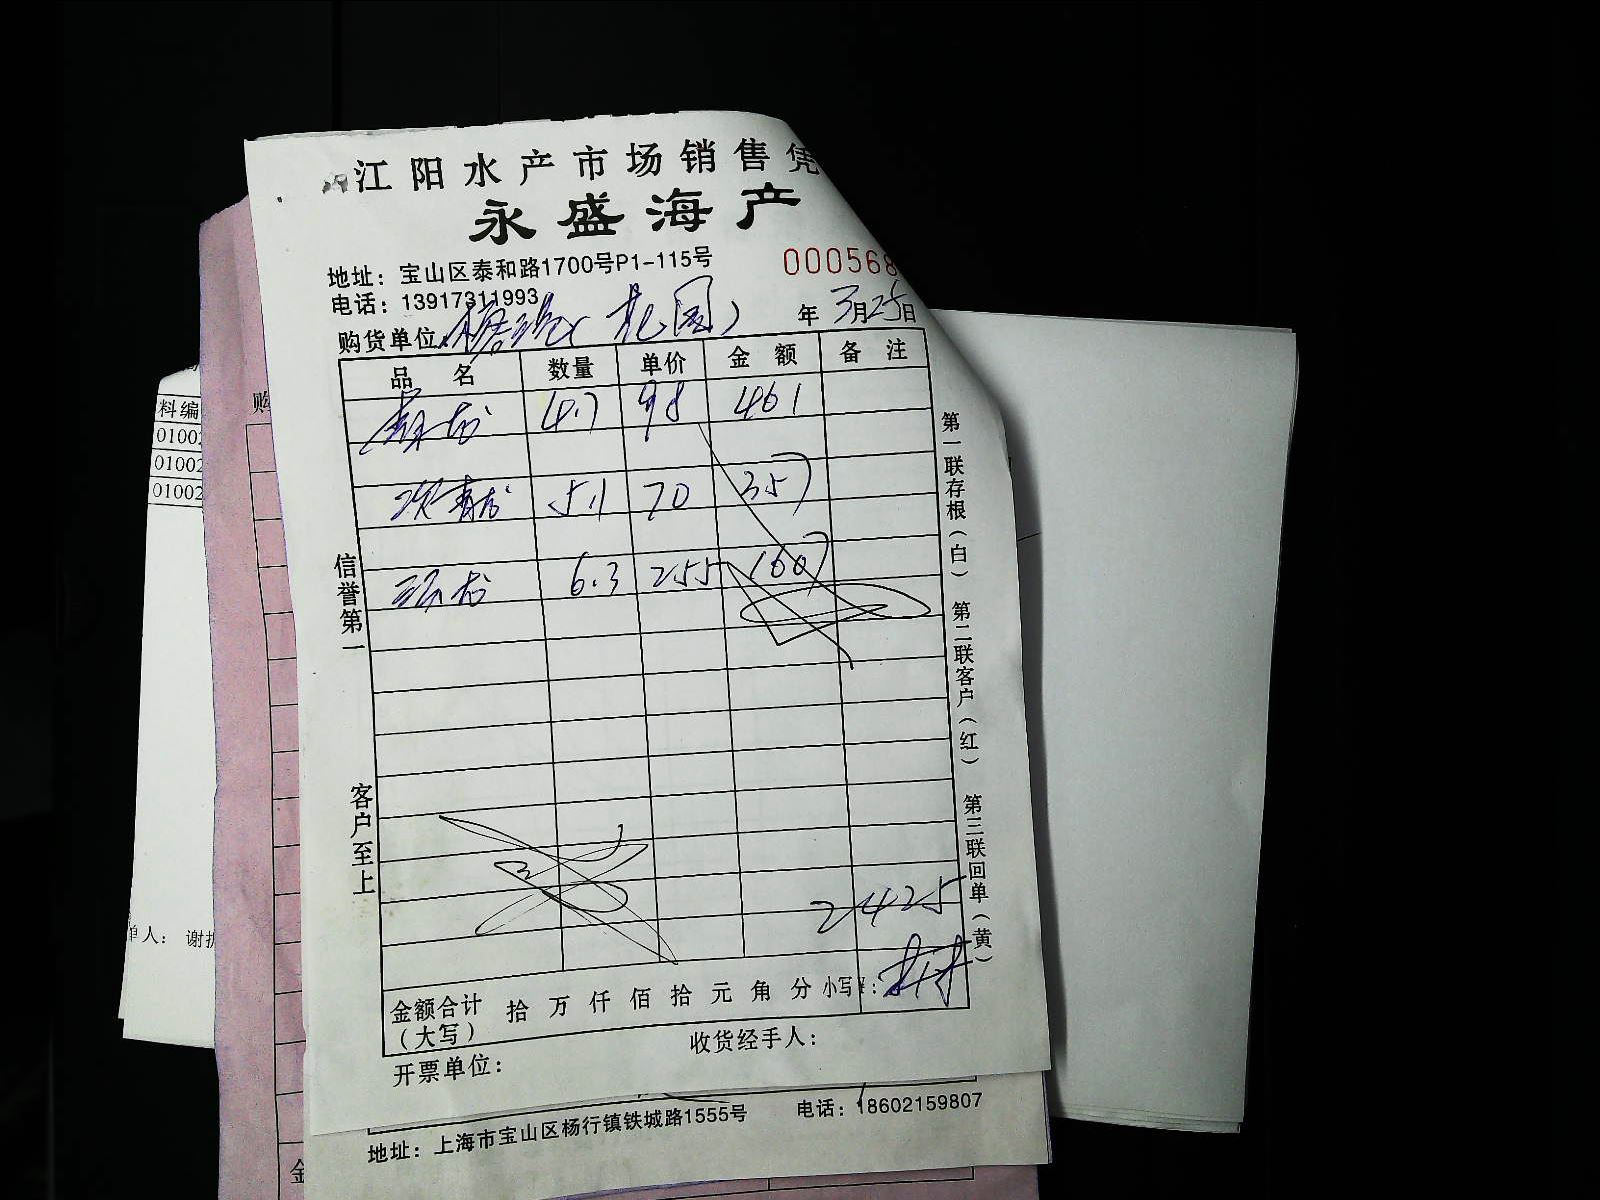 江阳水产市场销售凭
永盛海产
地址：宝山区泰和路1700号P1-115号
000568
电话：13917311993
购货单位 (花园) 年3月25日
品名 数量 单价 金额 备注
青龙 4.7 98 461
次青龙 5.1 70 357
6.3 255 1607
信誉第一 客户至上
第一联存根(白) 第二联客户(红) 第三联回单(黄)
2425
金额合计(大写) 拾万仟佰拾元角分 小写¥:
开票单位： 收货经手人：
地址：上海市宝山区杨行镇铁城路1555号 电话：18602159807
料编
01002
01002
01002
单人：谢
购
金